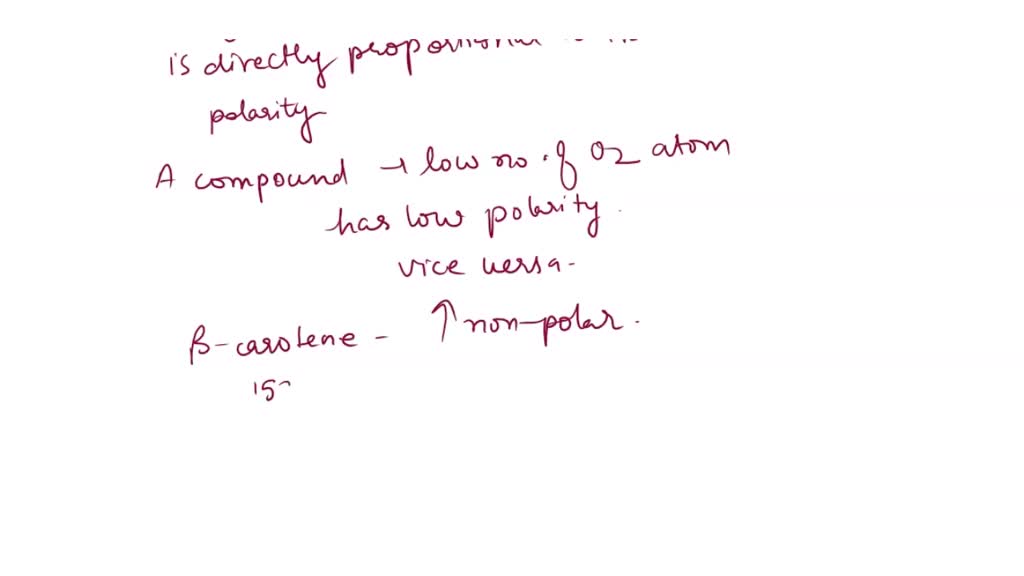 is directly proportional
polarity
A compound → low no. of O2 atom
has low polarity.
vice versa.
β-carotene - ↑ non-polar.
is